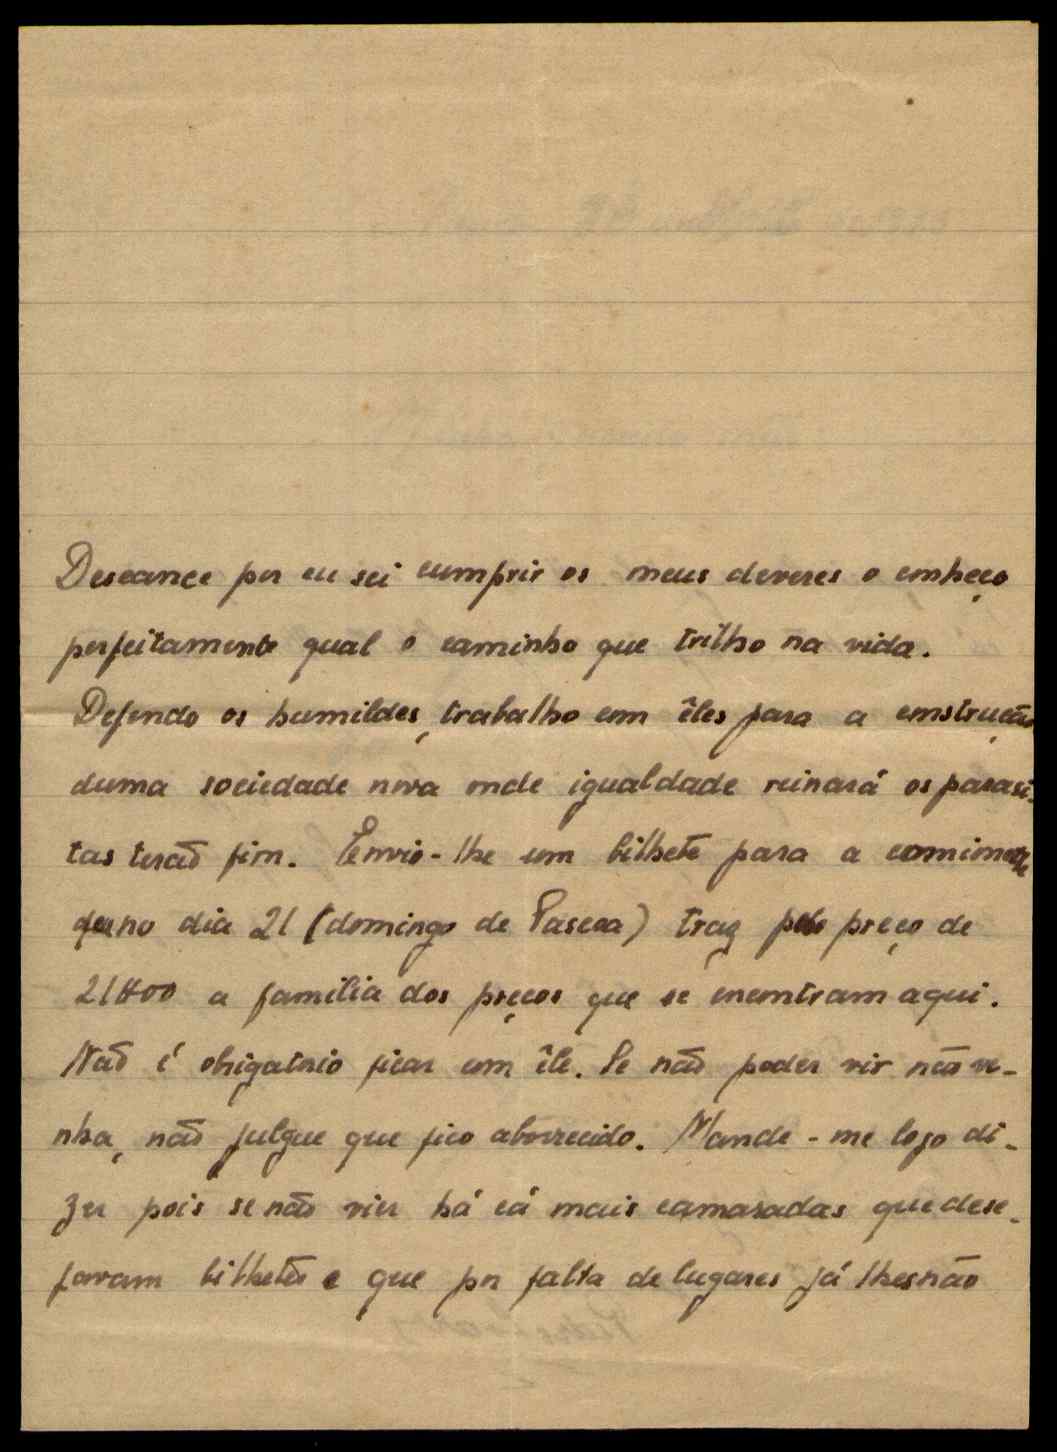 Descance por eu sei cumprir os meus deveres o conheço
perfeitamente qual o caminho que trilho na vida.
Defendo os humildes, trabalho com êles para a construção
duma sociedade nova onde igualdade reinará os parasi-
tas terão fim. Envio-lhe um bilhete para a
no dia 21 (domingo de Pascoa) traz pelo preço de
21$00 a familia dos preços que se encontram aqui.
Não é obrigatorio ficar com êle. Se não poder vir não ve-
nha, não julgue que fico aborrecido. Mande-me logo di-
zer pois se não vier há cá mais camaradas que dese-
javam bilhetes e que por falta de lugares já lhes não